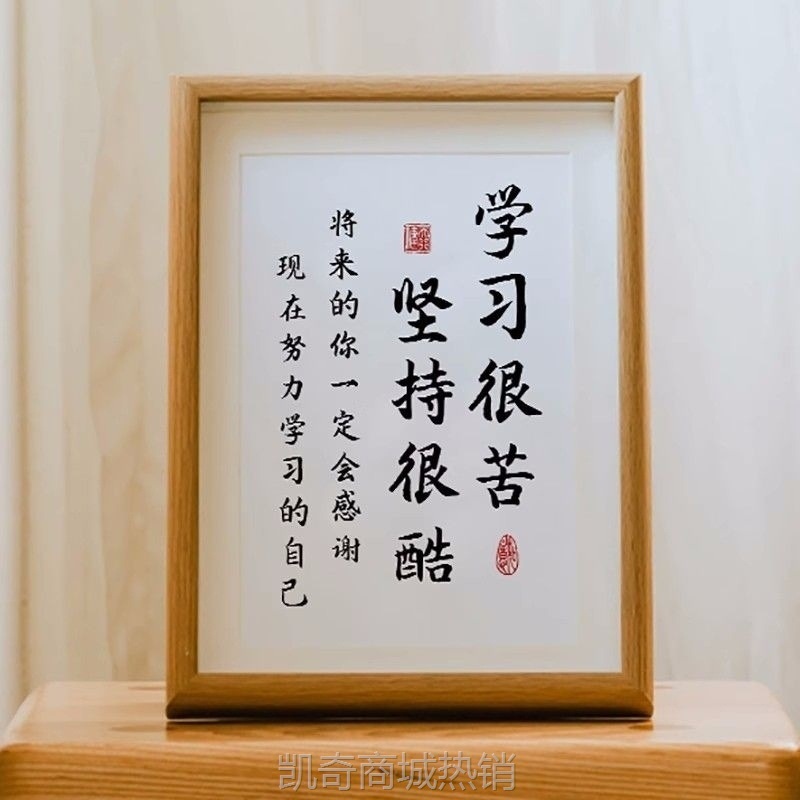 学习很苦
坚持很酷
将来的你一定会感谢
现在努力学习的自己
凯奇商城热销